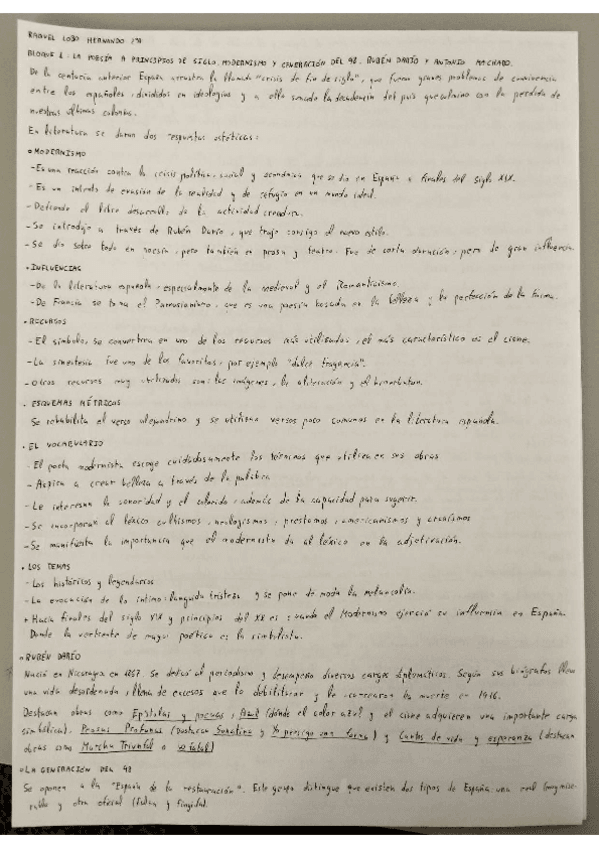 RAQUEL LOBO HERNANDO
BLOQUE 1. LA POESÍA A PRINCIPIOS DE SIGLO. MODERNISMO Y GENERACIÓN DEL 98. RUBÉN DARÍO Y ANTONIO MACHADO.
De la centuria anterior España arrastra la llamada "crisis de fin de siglo", que fueron graves problemas de convivencia
entre los españoles, divididos en ideologías y a ello sumado la decadencia del país que culmino con la perdida de
nuestras últimas colonias.
En literatura se daran dos respuestas estéticas:
• MODERNISMO
- Es una reacción contra la crisis política, social y económica que se dio en España a finales del siglo XIX.
- Es un intento de evasión de la realidad y de refugio en un mundo ideal.
- Defiende el libre desarrollo de la actividad creadora.
- Se introdujo a través de Rubén Darío, que trajo consigo el nuevo estilo.
- Se dio sobre todo en poesía, pero también en prosa y teatro. Fue de corta duración, pero de gran influencia.
• INFLUENCIAS
- De la literatura española, especialmente de la medieval y el Romanticismo.
- De Francia se toma el Parnasianismo, que es una poesía basada en la belleza y la perfección de la forma.
• RECURSOS
- El símbolo, se convertira en uno de los recursos más utilizados, el más característico es el cisne.
- La sinestesia fue uno de los favoritos, por ejemplo "dulce fragancia".
- Otros recursos muy utilizados son: las imágenes, la aliteración y el hipérbaton.
• ESQUEMAS MÉTRICOS
Se rehabilita el verso alejandrino y se utilizan versos poco comunes en la literatura española.
• EL VOCABULARIO
- El poeta modernista escoge cuidadosamente los términos que utiliza en sus obras
- Aspira a crear belleza a través de la palabra
- Le interesan la sonoridad y el colorido, además de la capacidad para sugerir.
- Se incorporan al léxico cultismos, neologismos, prestamos, americanismos y arcaísmos
- Se manifiesta la importancia que el modernista da al léxico en la adjetivación.
• LOS TEMAS
- Los históricos y legendarios
- La evocación de lo íntimo: languida tristeza y se pone de moda la melancolía.
• Hacia finales del siglo XIX y principios del XX es cuando el Modernismo ejerció su influencia en España.
Donde la vertiente de mayor poético es la simbolista.
• RUBÉN DARÍO
Nació en Nicaragua en 1867. Se dedicó al periodismo y desempeño diversos cargos diplomáticos. Según sus biógrafos llevo
una vida desordenada, llena de excesos que lo debilitaron y le acercaron la muerte en 1916.
Destacan obras como Epístolas y poemas, Azul (dónde el color azul y el cisne adquieren una importante carga
simbólica), Prosas Profanas (destacan Sonatina y Yo persigo una forma) y Cantos de vida y esperanza (destacan
obras como Marcha Triunfal o Lo fatal)
• LA GENERACIÓN DEL 98
Se oponen a la "España de la restauración". Este grupo distingue que existen dos tipos de España: una real (muy mise-
rable) y otra oficial (falsa y fingida).